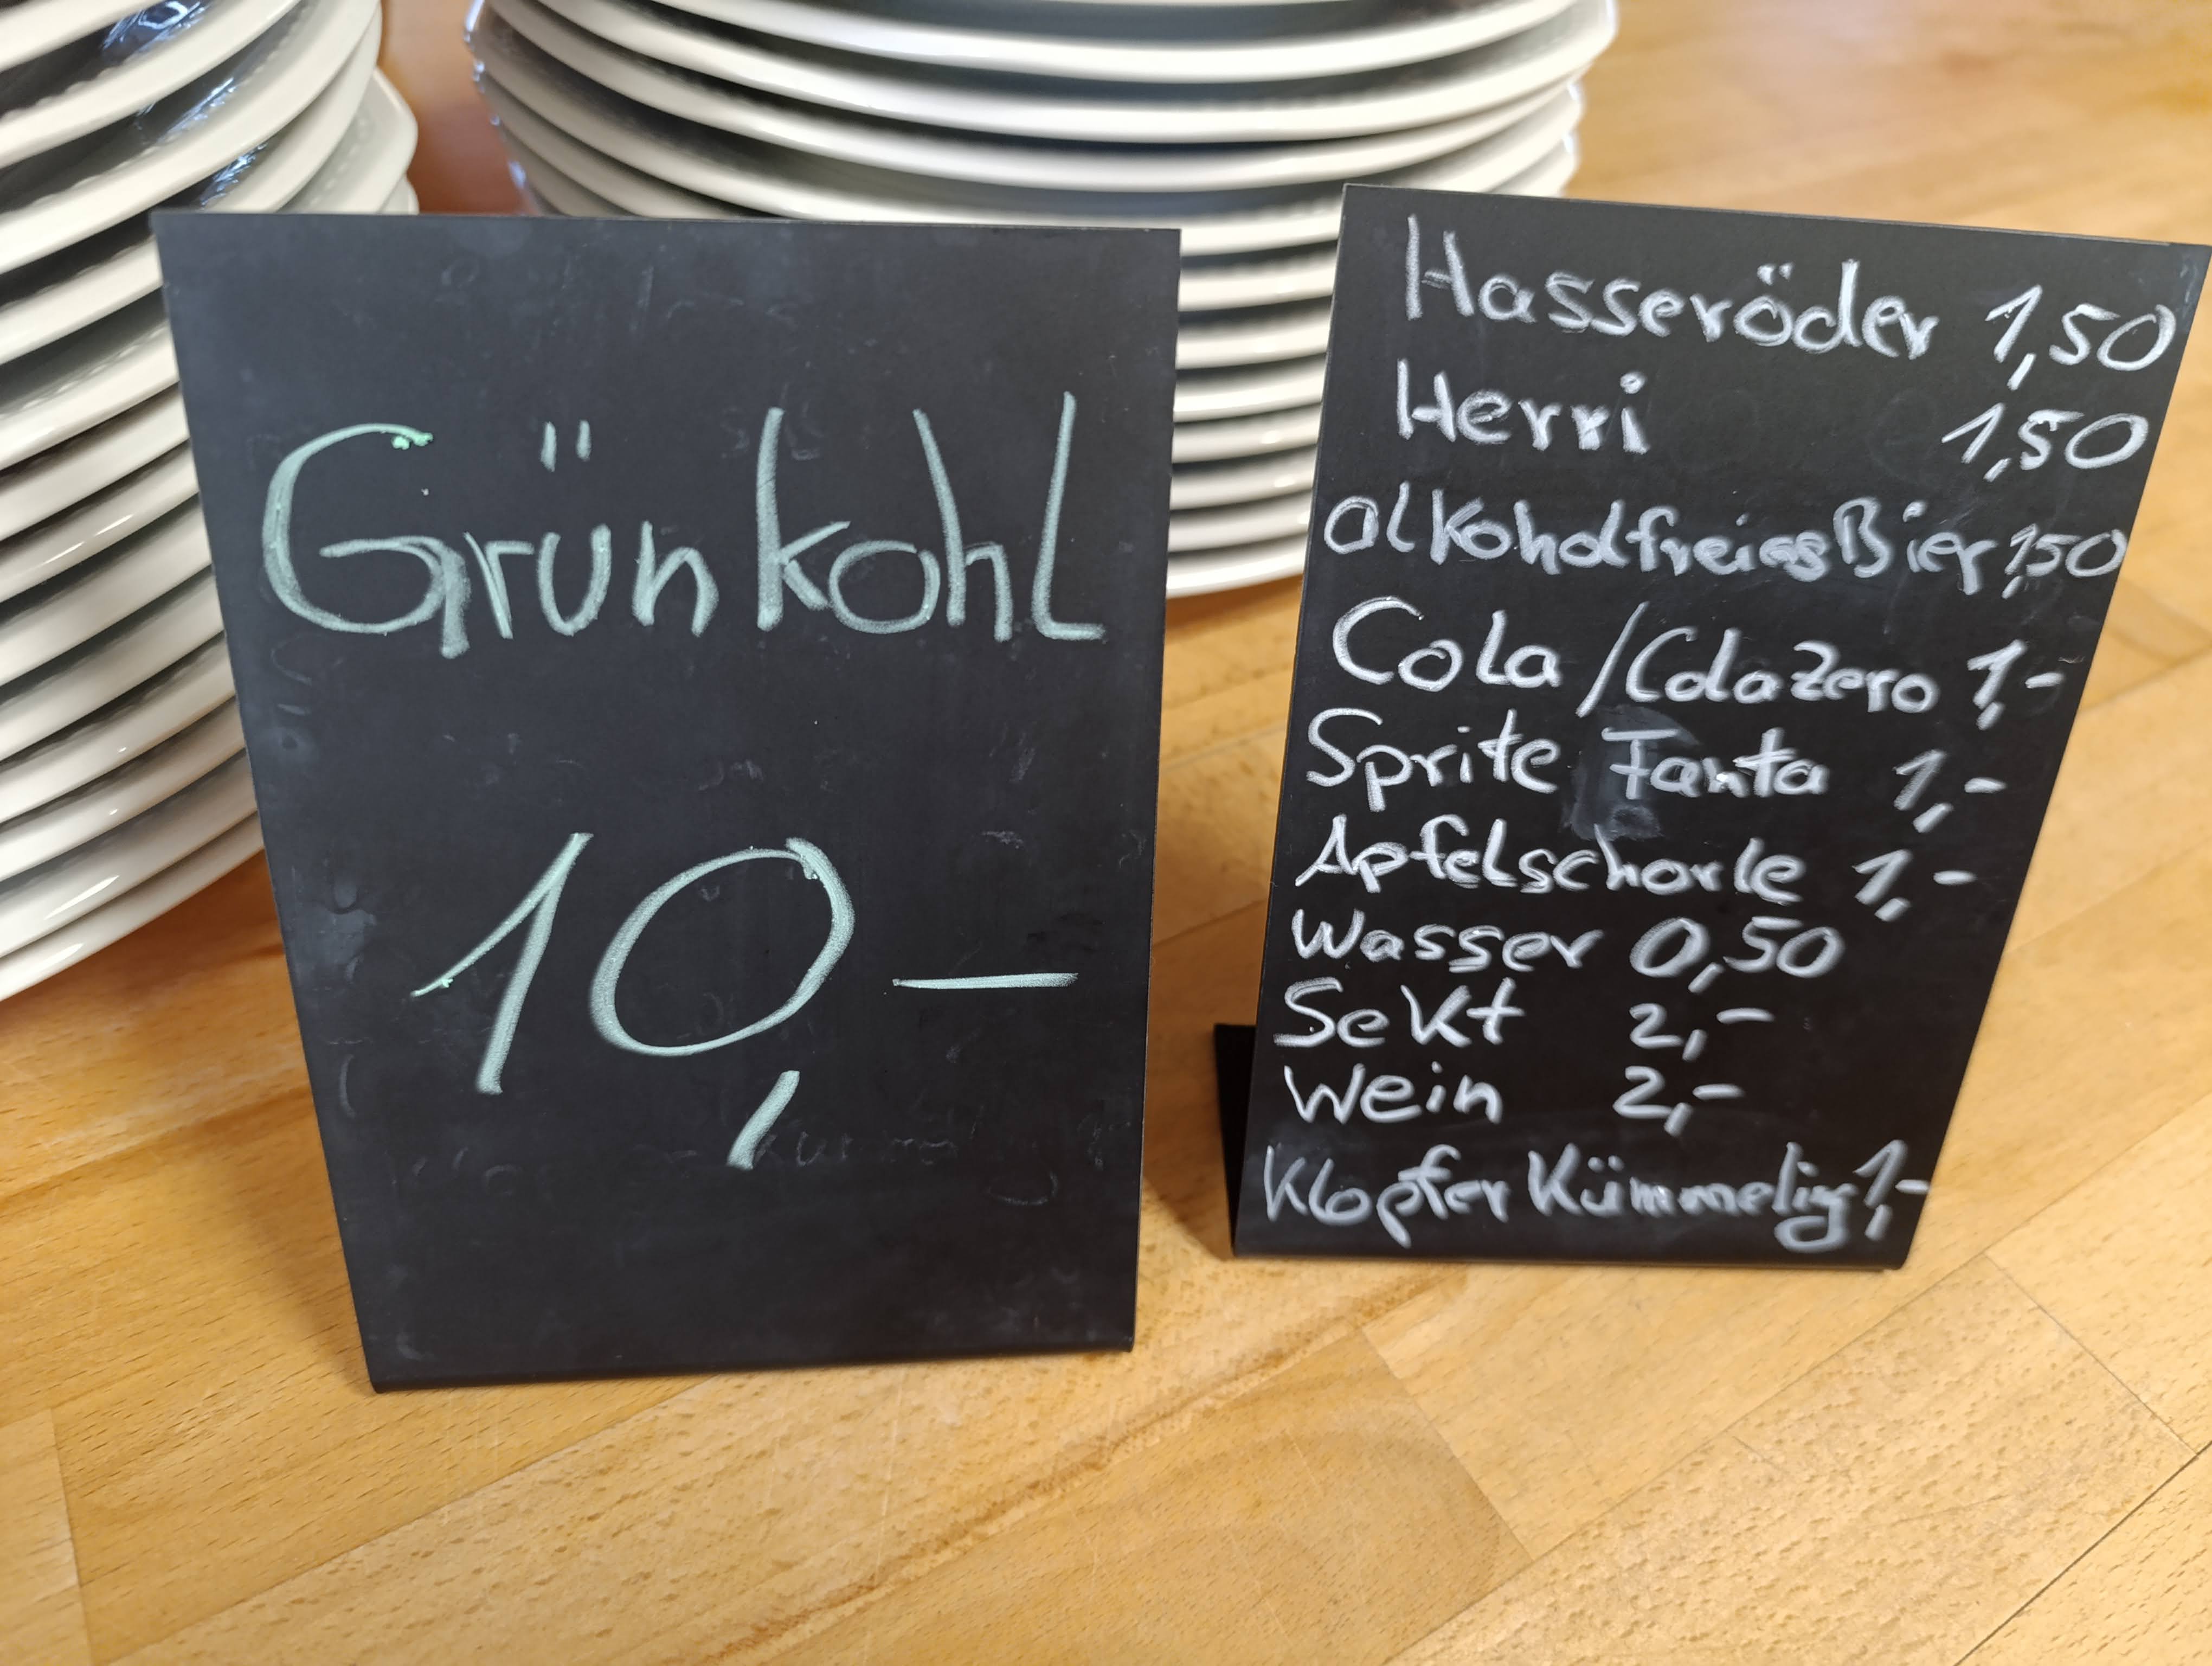 Grünkohl
10,-
Hasseröder 1,50
Herri 1,50
alkoholfreies Bier 1,50
Cola / Cola Zero 1,-
Sprite Fanta 1,-
Apfelschorle 1,-
Wasser 0,50
Sekt 2,-
Wein 2,-
Klopfer Kümmeling 1,-